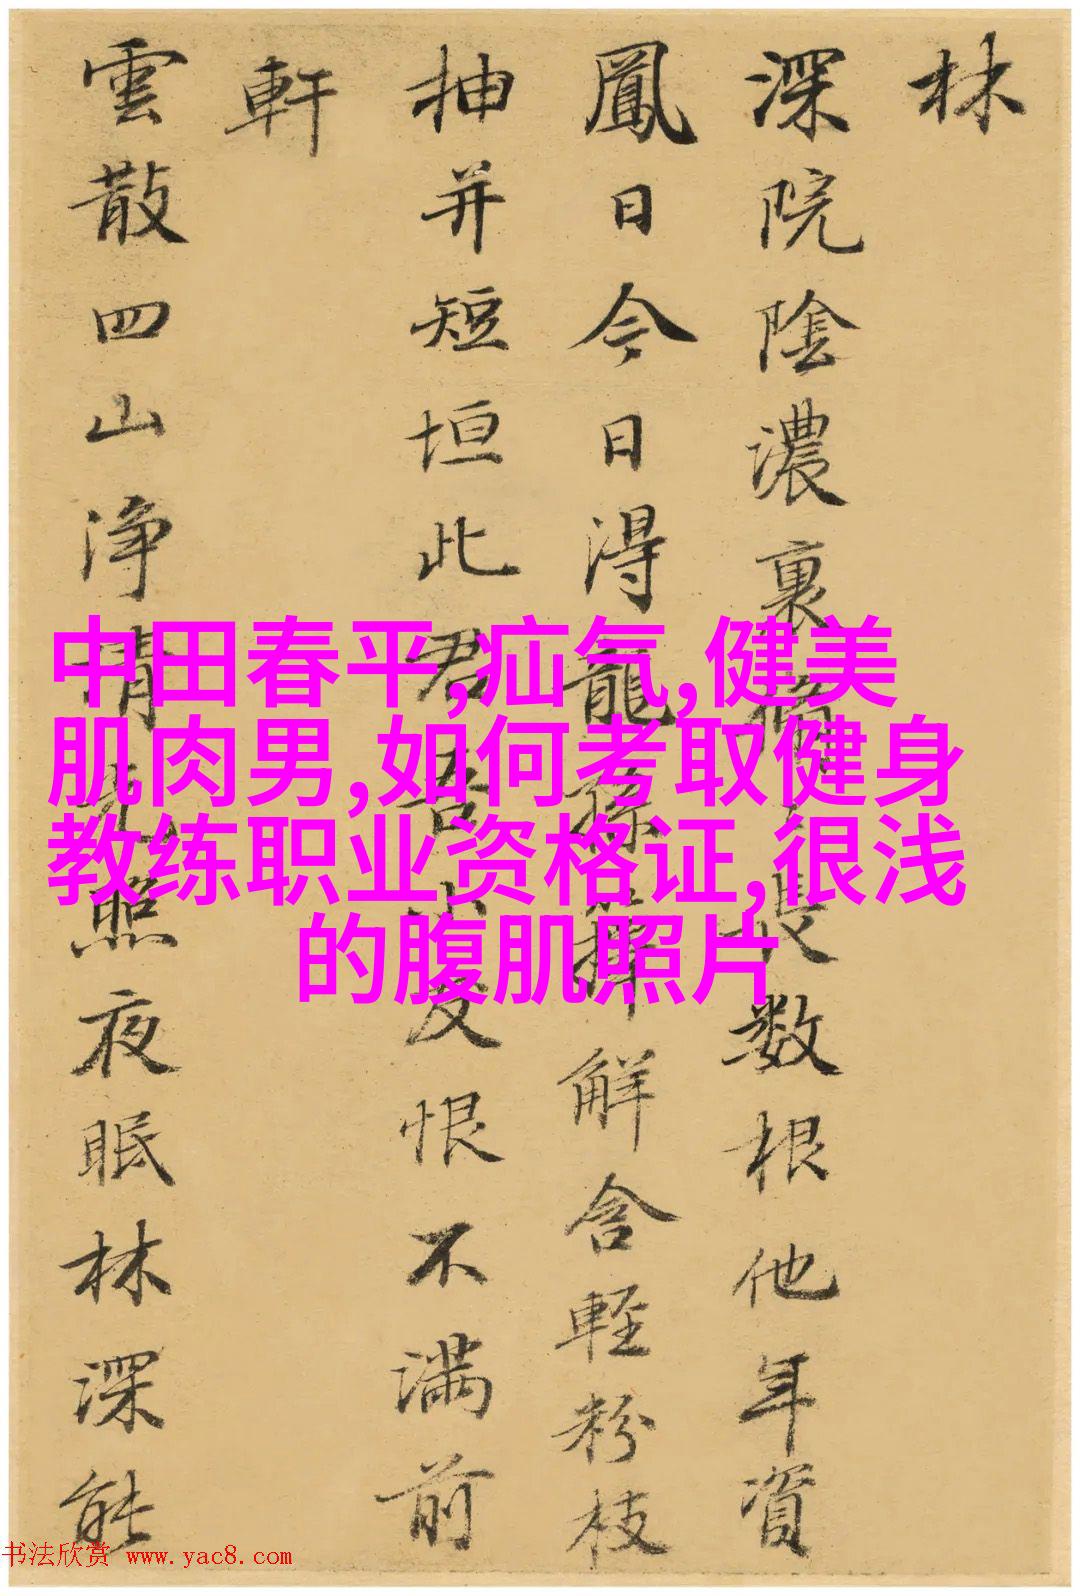 林
深院陰濃裏脩長數根他年資
鳳日今日得龍孫籜解含輕粉枝
抽并短垣此君吾小友恨不满前
軒
雲散四山浄清光照夜眠林深能
中田春平,疝气,健美
肌肉男,如何考取健身
教练职业资格证,很浅
的腹肌照片
书法欣赏 www.yac8.com